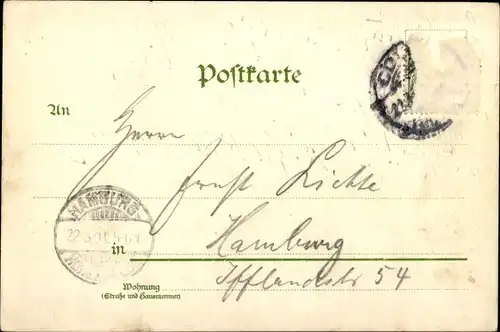 Postkarte
An
Herrn
Ernst Lichte
in Hamburg
Ifflandstr 54
Wohnung
(Straße und Hausnummer)
HAMBURG